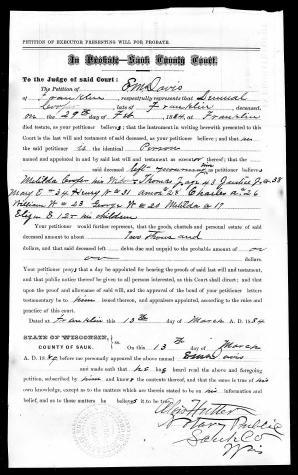 PETITION OF EXECUTOR PRESENTING WILL FOR PROBATE.
In Probate—Sauk County Court.
To the Judge of said Court:
The Petition of E M Davis
of Franklin, respectfully represents that Demual
late of Franklin, deceased,
on the 29th day of Feb. 1884 at Franklin
died testate, as your petitioner believes; that the instrument in writing herewith presented to this
Court is the last will and testament of said deceased, as your petitioner believe; and that
the said petitioner is the identical Person
named and appointed in and by said will and testament as executor thereof; that the
said deceased left surviving as your petitioner believes
Matilda his Wife, Thomas J age 43 38
Mary E " 34 Henry W " 31 Amos " 28 Charles A " 26
William W " 23 George W " 20 Matilda " 17
Eliza E 12 his children
Your petitioner would further represent, that the goods, chattels and personal estate of said
deceased amount to about Two Thousand
dollars, and that said deceased left debts due and unpaid to the probable amount of
dollars.
Your petitioner pray that a day be appointed for hearing the proofs of said last will and testament,
and that public notice thereof be given to all persons interested, as this Court shall direct; and that
upon the proof and allowance of said will, and the approval of the bond of your petitioner letters
testamentary be to him issued thereon, and appraisers appointed, according to the rules and
practice of this court.
Dated at Franklin this 13th day of March A. D. 1884
STATE OF WISCONSIN,
COUNTY OF SAUK.
ss.
On this 13th day of March
A. D. 1884 before me personally appeared the above named E M Davis
and made oath that he has heard read the above and foregoing
petition, subscribed by him and knows the contents thereof, and that the same is true of his
own knowledge, except as to the matters which are therein stated to be on his information and
belief, and as to those matters he believes it to be true.
Notary Public
Sauk Co
Wis